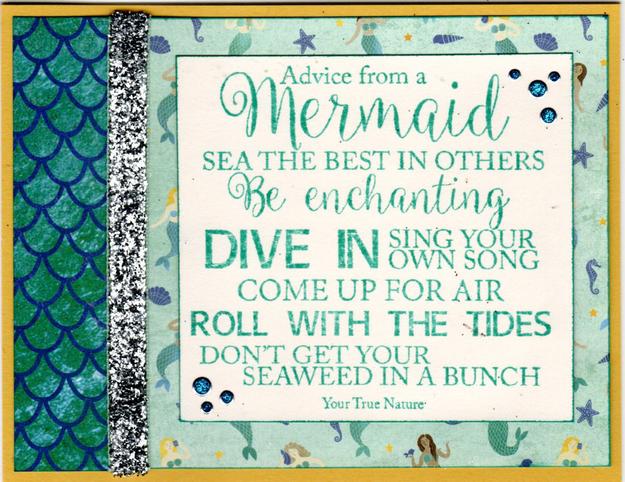 Advice from a
Mermaid
SEA THE BEST IN OTHERS
Be enchanting
DIVE IN SING YOUR
OWN SONG
COME UP FOR AIR
ROLL WITH THE TIDES
DON'T GET YOUR
SEAWEED IN A BUNCH
Your True Nature